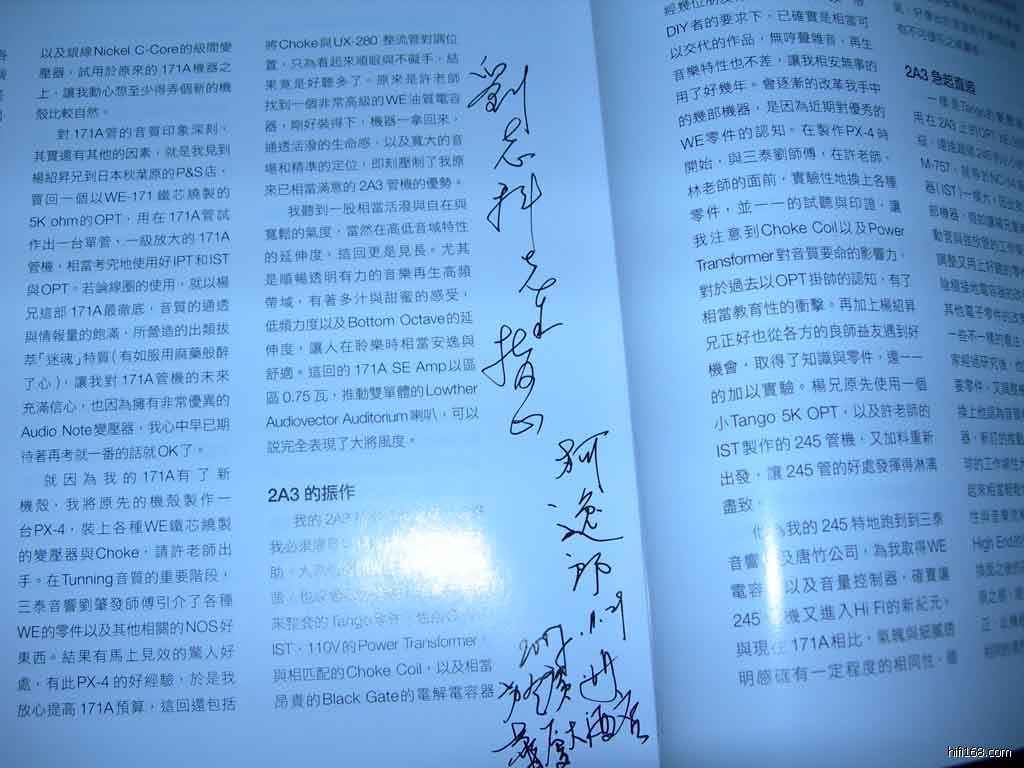 以及銀線Nickel C-Core的級間變
壓器，試用於原來的171A機器之
上，讓我動心想至少得弄個新的機
殼比較自然。
對171A管的音質印象深刻，
其實還有其他的因素，就是我見到
楊紹昇兄到日本秋葉原的P&S店，
買回一個以WE-171鐵芯繞製的
5K ohm的OPT，用在171A管試
作出一台單管、一級放大的171A
管機，相當考究地使用好IPT和IST
與OPT。若論線圈的使用，就以楊
兄這部171A最徹底，音質的通透
與情報量的飽滿，所營造的出類拔
萃「迷魂」特質（有如服用麻藥般醉
了心），讓我對171A管機的未來
充滿信心，也因為擁有非常優異的
Audio Note變壓器，我心中早已期
待著再考就一番的話就OK了。
就因為我的171A有了新
機殼，我將原先的機殼製作一
台PX-4，裝上各種WE鐵芯繞製
的變壓器與Choke，請許老師出
手。在Tunning音質的重要階段，
三泰音響劉肇發師傅引介了各種
WE的零件以及其他相關的NOS好
東西。結果有馬上見效的驚人好
處，有此PX-4的好經驗，於是我
放心提高171A預算，這回還包括
將Choke與UX-280 整流管對調位
置，只為看起來順眼與不礙手，結
果竟是好聽多了。原來是許老師
找到一個非常高級的WE油質電容
器，剛好裝得下，機器一拿回來，
通透活潑的生命感，以及寬大的音
場和精準的定位，即刻壓制了我原
來已相當滿意的2A3管機的優勢。
我聽到一股相當活潑與自在與
寬鬆的氣度，當然在高低音域特性
的延伸度，這回更是見長。尤其
是順暢透明有力的音樂再生高頻
帶域，有著多汁與甜蜜的感受，
低頻力度以及Bottom Octave的延
伸度，讓人在聆樂時相當安逸與
舒適。這回的171A SE Amp以區
區0.75瓦，推動雙單體的Lowther
Audiovector Auditorium喇叭，可以
說完全表現了大將風度。
2A3 的振作
我的2A3
我必須
助。
來整套的Tango零件，
IST、110V的Power Transformer，
與相匹配的Choke Coil，以及相當
昂貴的Black Gate的電解電容器
劉志科先生指正
逸郎
2007.11.29
大酒店
DIY者的要求下，已確實是相當可
以交代的作品，無哼聲雜音，再生
音樂特性也不差，讓我相安無事的
用了好幾年。會逐漸的改革我手中
的幾部機器，是因為近期對優秀的
WE零件的認知。在製作PX-4時
開始，與三泰劉師傅，在許老師、
林老師的面前，實驗性地換上各種
零件，並一一的試聽與印證，讓
我注意到Choke Coil以及Power
Transformer對音質要命的影響力，
對於過去以OPT掛帥的認知，有了
相當教育性的衝擊。再加上楊紹昇
兄正好也從各方的良師益友遇到好
機會，取得了知識與零件，還一一
的加以實驗。楊兄原先使用一個
小Tango 5K OPT，以及許老師的
IST製作的245管機，又加料重新
出發，讓245管的好處發揮得淋漓
盡致。
為我的245特地跑到到三泰
音響 及唐竹公司，為我取得WE
電容 以及音量控制器，確實讓
245 機又進入Hi Fi的新紀元，
與現在 171A相比，氣魄與細膩透
明感確有一定程度的相同性，雖
2A3急起直追
hifi168.com